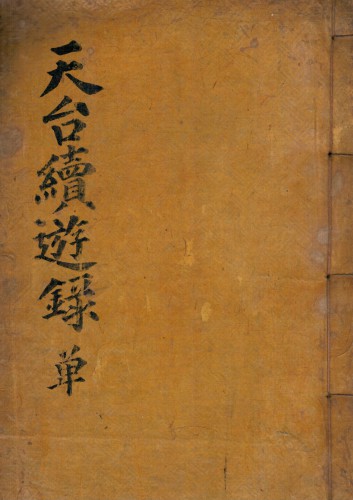 天台續遊錄 単